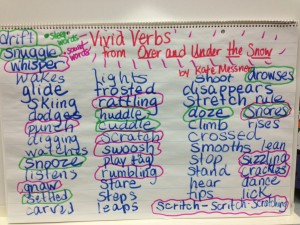 drift
sleep words
sound words
Vivid Verbs
from Over and Under the Snow
by Kate Messner
snuggle
whisper
wakes
glide
skiing
dodges
punch
digging
watches
snooze
listens
gnaw
settled
carved
lights
frosted
rattling
huddle
cuddle
scratch
swoosh
play tag
rumbling
stare
steps
leaps
shoot
disappears
stretch
doze
climb
crossed
smooths
stop
stand
hear
tips
scritch-scritch-scratching
drowses
rule
snores
rises
lean
sizzling
crackles
dance
lick